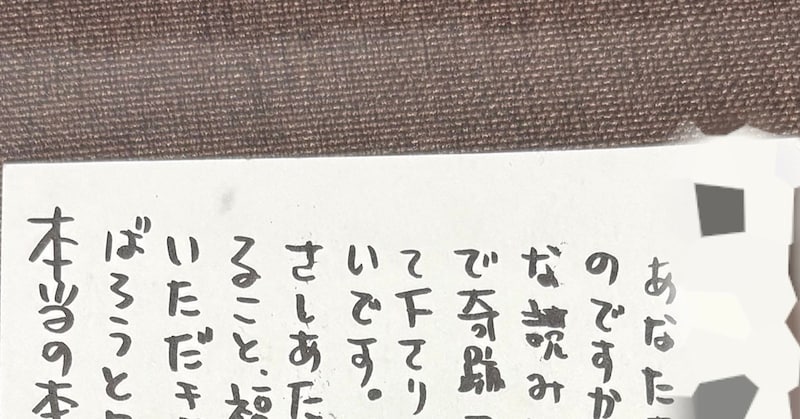 あなた
のですか
な読み
で奇跡
て下てり
いです。
さしあた
ること、祝
いただき
ばろうと
本当の本